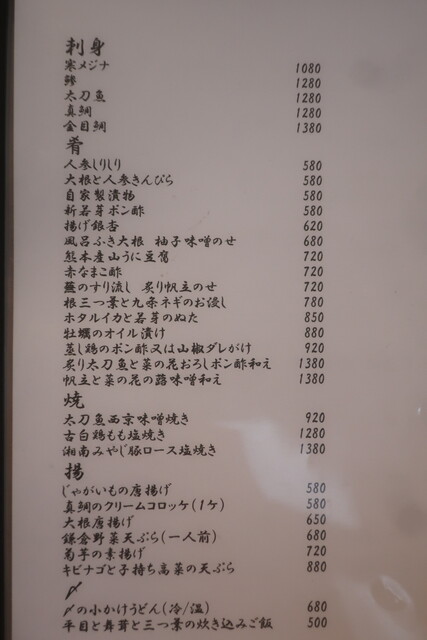 刺身
寒メジナ 1080
鰺 1280
太刀魚 1280
真鯛 1280
金目鯛 1380
肴
人参しりしり 580
大根と人参きんぴら 580
自家製漬物 580
新若芽ポン酢 580
揚げ銀杏 620
風呂ふき大根 柚子味噌のせ 680
熊本産山うに豆腐 720
赤なまこ酢 720
蕪のすり流し 炙り帆立のせ 720
根三つ葉と九条ネギのお浸し 780
ホタルイカと若芽のぬた 850
牡蠣のオイル漬け 880
蒸し鶏のポン酢又は山椒ダレがけ 920
炙り太刀魚と菜の花おろしポン酢和え 1380
帆立と菜の花の蕗味噌和え 1380
焼
太刀魚西京味噌焼き 920
古白鶏もも塩焼き 1280
湘南みやじ豚ロース塩焼き 1380
揚
じゃがいもの唐揚げ 580
真鯛のクリームコロッケ(1ケ) 580
大根唐揚げ 650
鎌倉野菜天ぷら(一人前) 680
菊芋の素揚げ 720
キビナゴと子持ち高菜の天ぷら 880
〆
〆の小かけうどん(冷/温) 680
平目と舞茸と三つ葉の炊き込みご飯 500